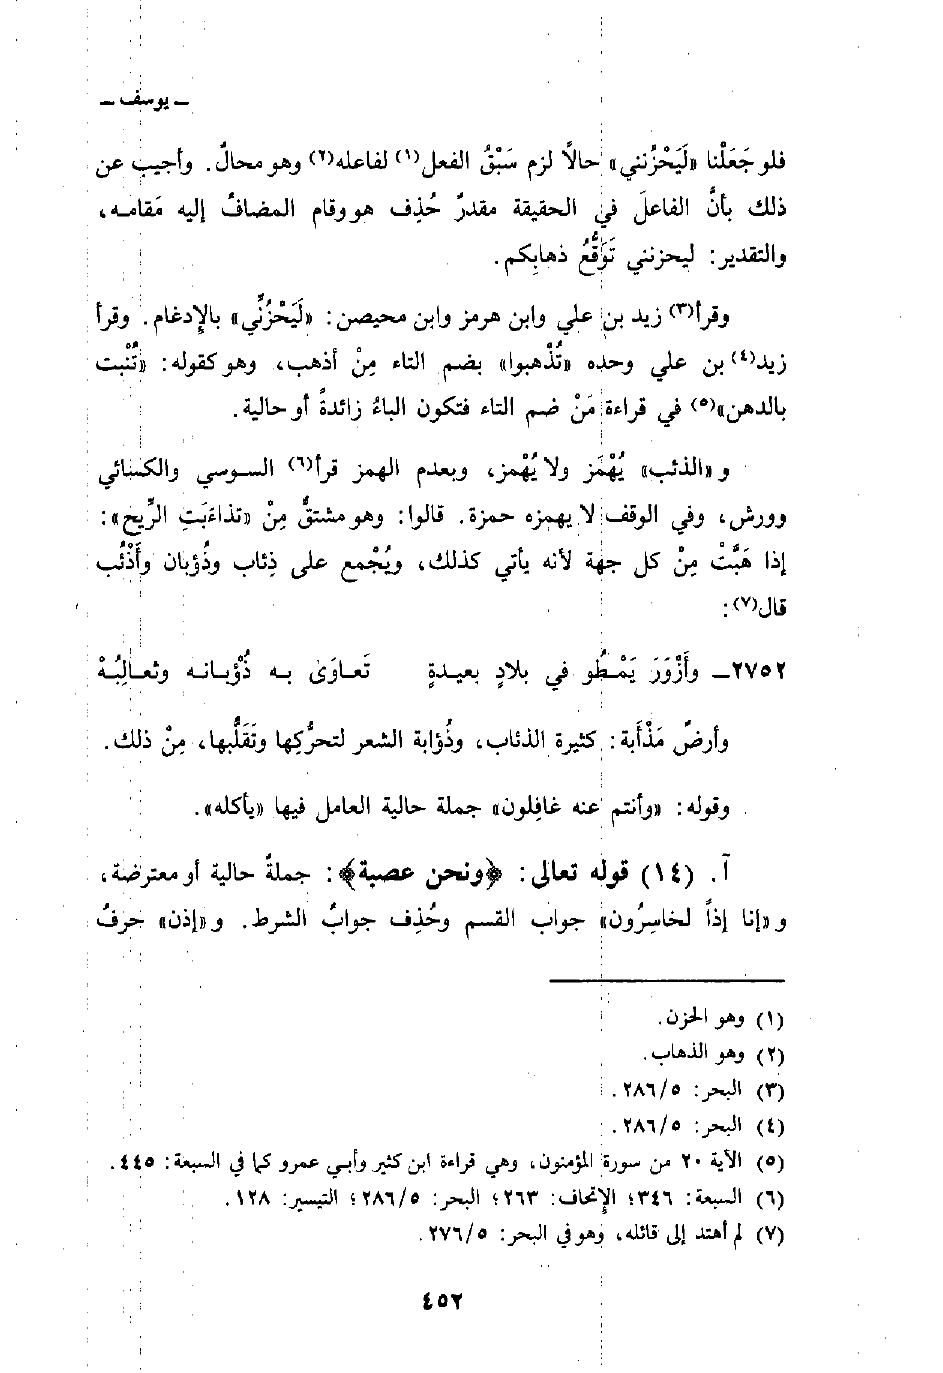 ـ يوسف ـ
فلو جَعَلْنا «لَيَحْزُنني» حالًا لزم سَبْقُ الفعل(١) لفاعله(٢) وهو محالٌ. وأجيب عن
ذلك بأنَّ الفاعلَ في الحقيقة مقدرٌ حُذِف هو وقام المضافُ إليه مَقامه،
والتقدير: ليحزنني تَوَقُّعُ ذهابِكم.
وقرأ(٣) زيد بن علي وابن هرمز وابن محيصن: «لَيَحْزُنِّي» بالإِدغام. وقرأ
زيد(٤) بن علي وحده «تُذْهبوا» بضم التاء مِنْ أذهب، وهو كقوله: «تُنْبت
بالدهن»(٥) في قراءة مَنْ ضم التاء فتكون الباءُ زائدةً أو حالية.
و «الذئب» يُهْمَز ولا يُهْمز، وبعدم الهمز قرأ(٦) السوسي والكسائي
وورش، وفي الوقف لا يهمزه حمزة. قالوا: وهو مشتقٌّ مِنْ «تذاءَبَتِ الرِّيح»:
إذا هَبَّتْ مِنْ كل جهة لأنه يأتي كذلك، ويُجْمع على ذِئاب وذُؤبان وأَذْئُب
قال(٧):
٢٧٥٢ـ وأَزْوَرَ يَمْطُو في بلادٍ بعيدةٍ تَعاوَى به ذُؤْبانه وثعالِبُهْ
وأرضٌ مَذْأَبة: كثيرة الذئاب، وذُؤابة الشعر لتحرُّكِها وتَقَلُّبها، مِنْ ذلك.
وقوله: «وأنتم عنه غافِلون» جملة حالية العامل فيها «يأكله».
آ. (١٤) قوله تعالى: ﴿ونحن عصبة﴾: جملةٌ حالية أو معترضة،
و «إنا إذاً لخاسِرُون» جواب القسم وحُذِف جوابُ الشرط. و «إذن» حرفُ
(١) وهو الحزن.
(٢) وهو الذهاب.
(٣) البحر: ٢٨٦/٥.
(٤) البحر: ٢٨٦/٥.
(٥) الآية ٢٠ من سورة المؤمنون، وهي قراءة ابن كثير وأبـي عمرو كما في السبعة: ٤٤٥.
(٦) السبعة: ٣٤٦؛ الإتحاف: ٢٦٣؛ البحر: ٢٨٦/٥؛ التيسير: ١٢٨.
(٧) لم أهتد إلى قائله، وهو في البحر: ٢٧٦/٥.
٤٥٢